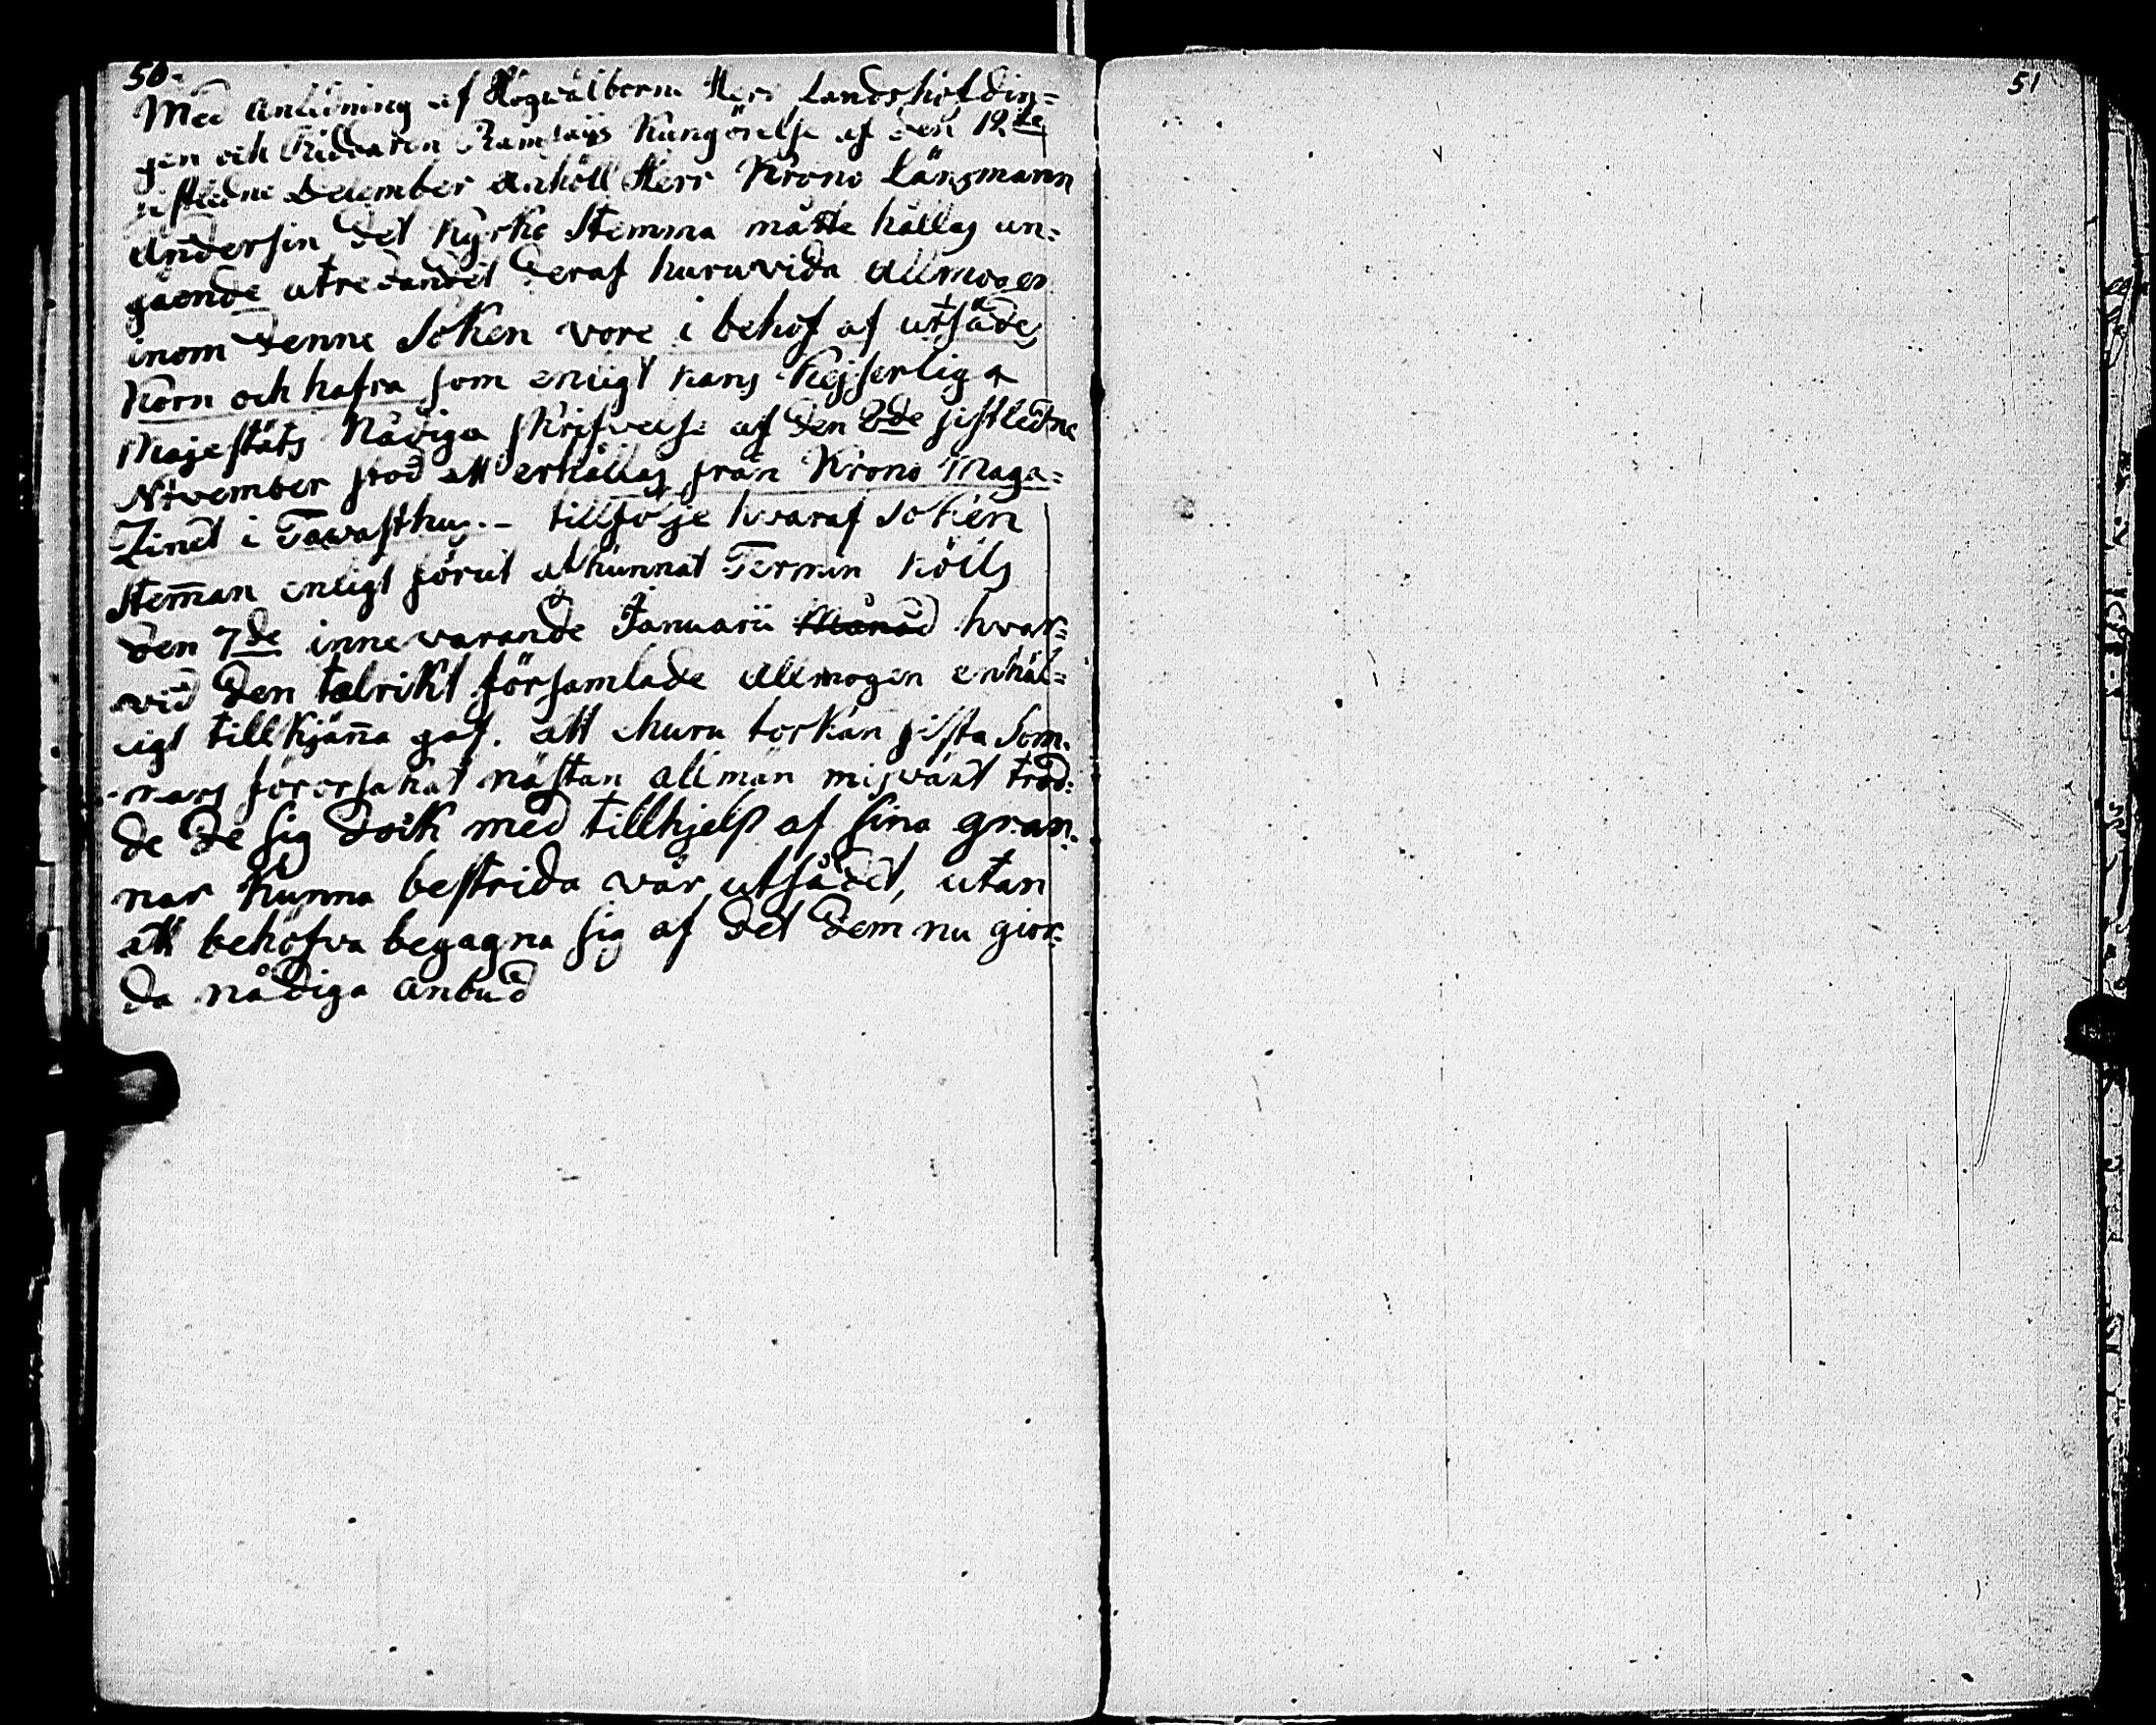 50.
Med anledning af Högwälborne Herr Landshöfdin=
gen och Riddaren Ramsays Kungörelse af den 12te
sistledne December anhöll Herr Krono Länsmann
Andersin det Kyrko Stemma måtte hållas an=
gående utredandet deraf huruvida Allmogen
inom denne Soken vore i behof af utsäde
Korn och hafra som enligt hans Kejserliga
Majestäts Nådiga skrifvelse af den 8de sistledne
November stod att erhållas från Krono Maga=
zinet i Tawasthus. - tillfölje hvaraf Soken
Stem̄an enligt förut afkunnat Termin hölls
den 7de innevarande Januarii Månad hvar=
vid den talrikt församlade Allmogen enhäl=
ligt tillkjän̄a gaf. att ehuru torkan sista Som=
mars förorsakat nästan allmän misväxt trod=
de de sig dock med tillhjelp af sina gran=
nar kunna bestrida vår utsädet, utan
att behöfva begagna sig af det dem nu gior=
da nådiga anbud
51